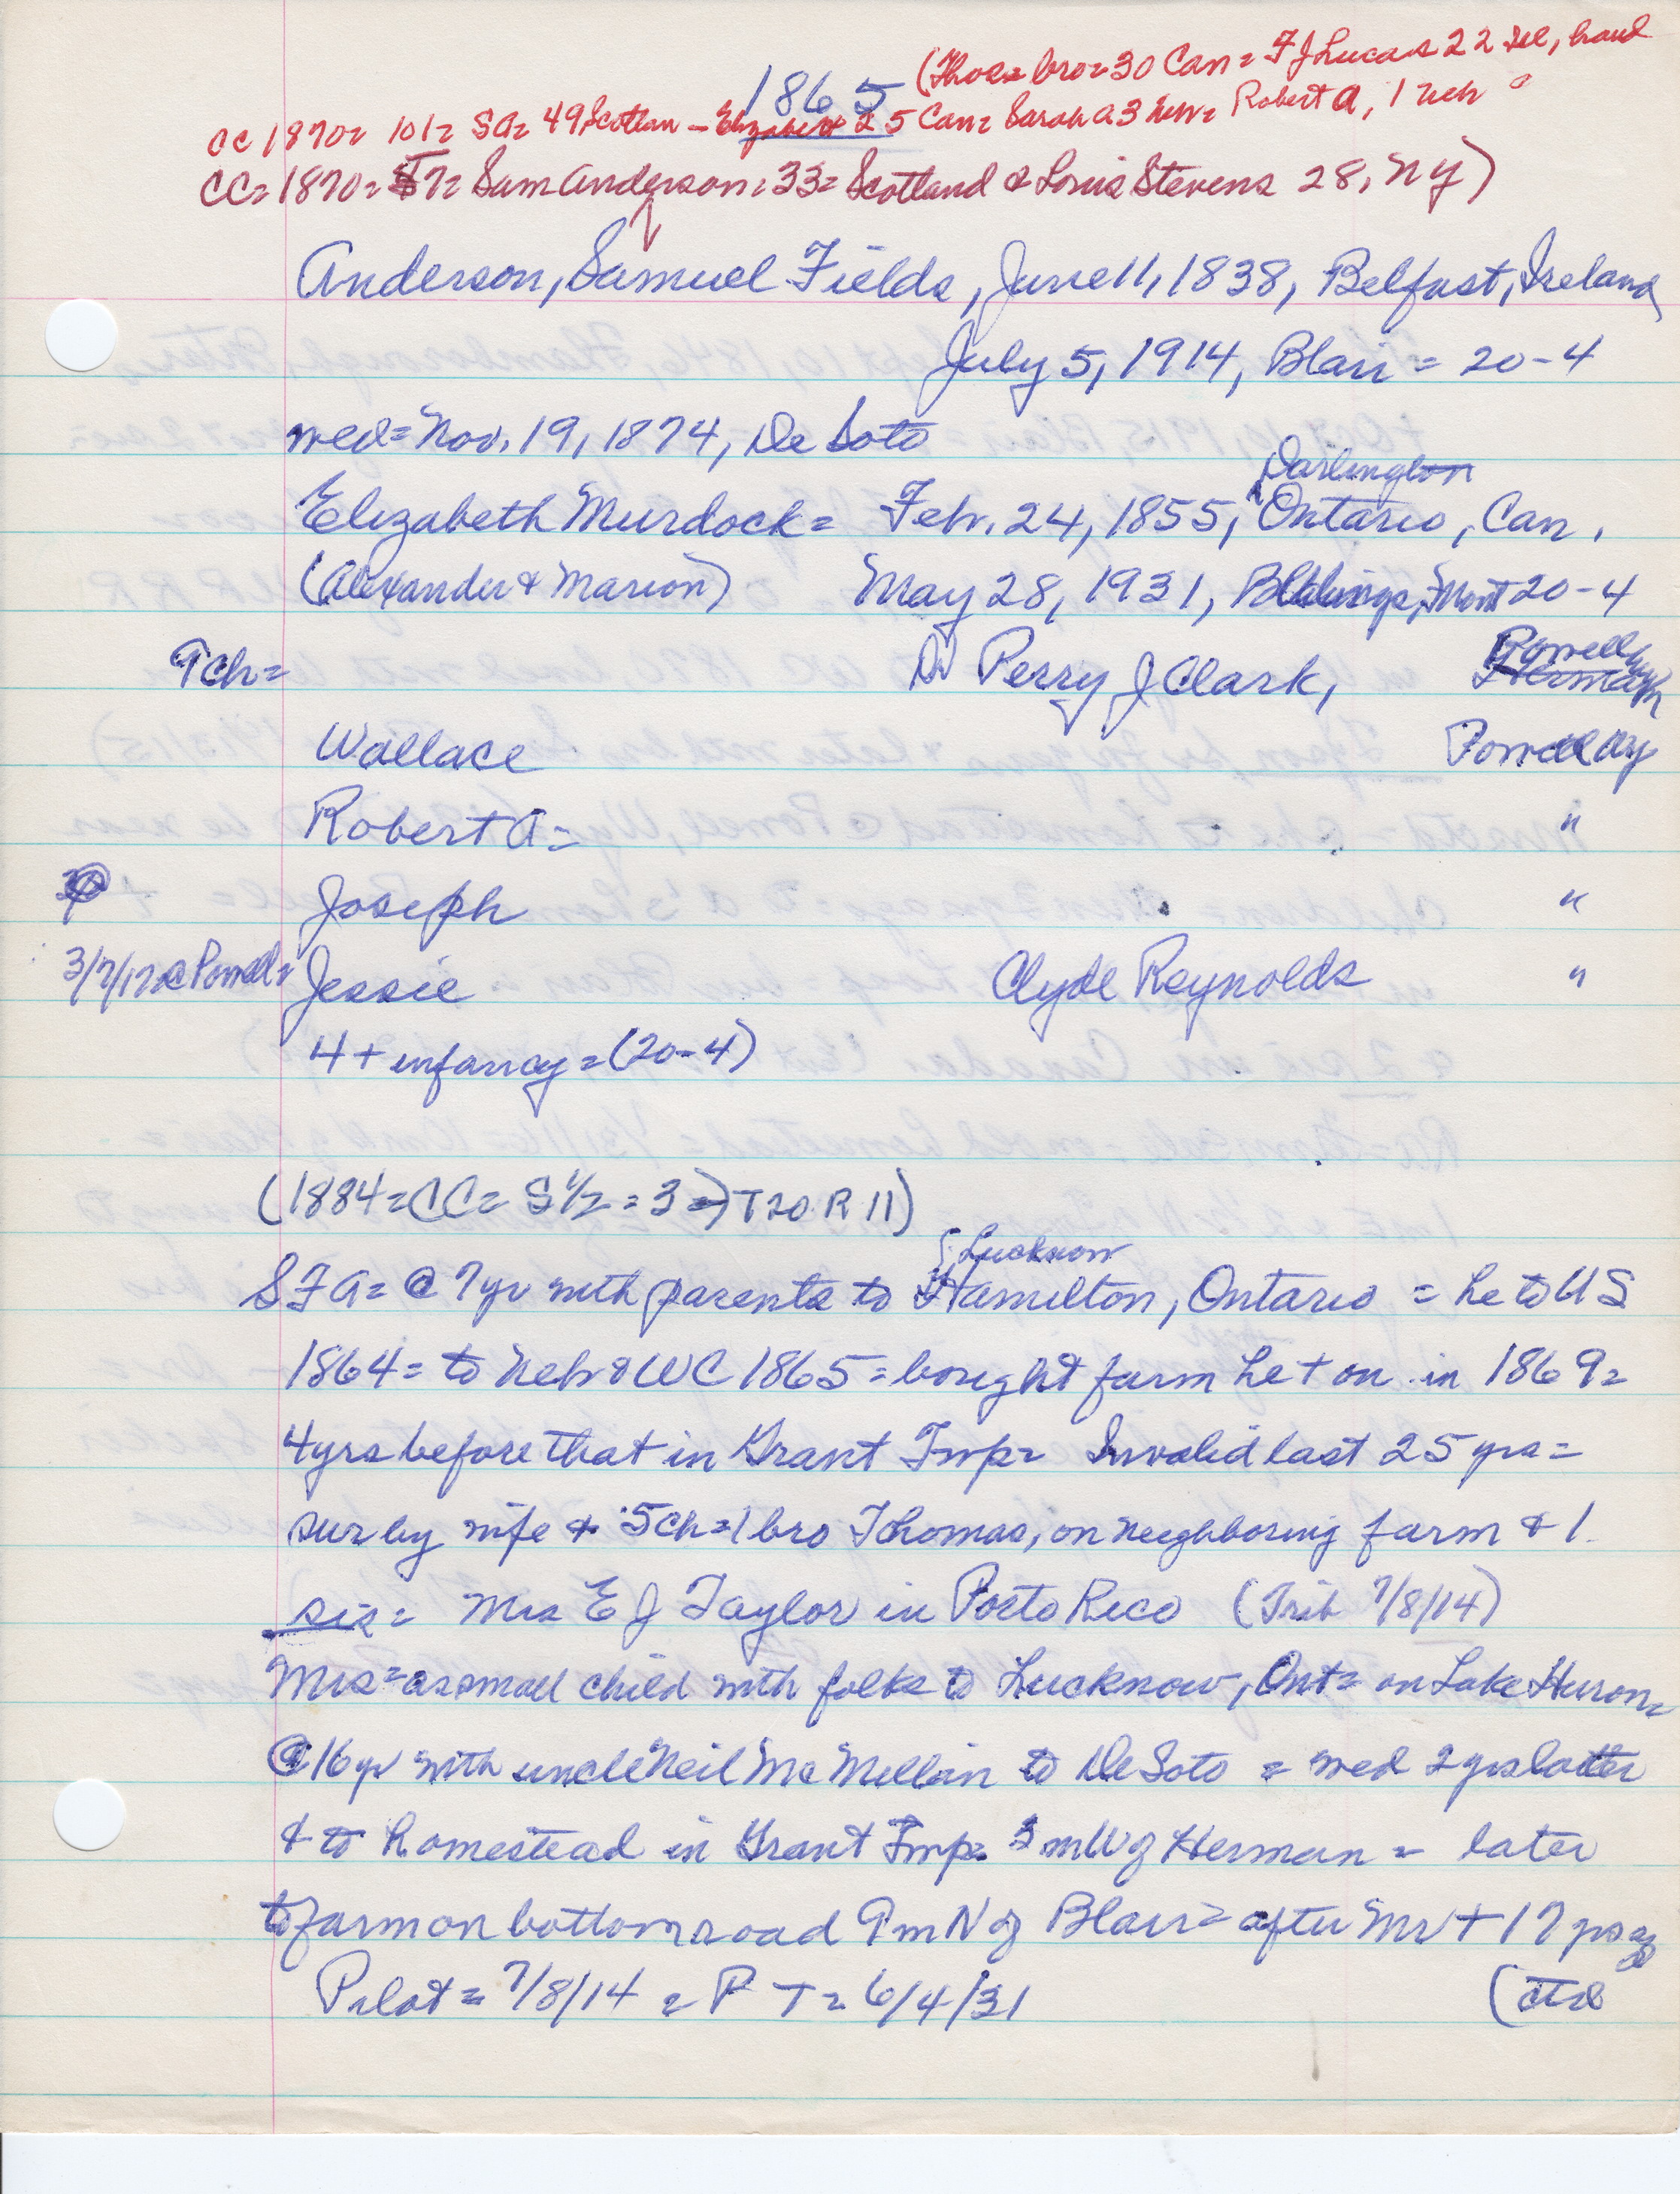 (Thos= bro=30 Can= F J Lucas 22 Ill,
1865
CC 1870= 101= SA= 49 Scotlan - Elizabeth 25 Can= Sarah A 3 Neb= Robert A, 1 Neb "
CC=1870= 57= Sam Anderson, 33= Scotland & Louis Stevens 28, NY)
Anderson, Samuel Fields, June 11, 1838, Belfast, Ireland
July 5, 1914, Blair = 20-4
med=Nov. 19, 1874, De Soto
Darlington
Elizabeth Murdock= Feb. 24, 1855, Ontario, Can.
(Alexander & Marion) May 28, 1931, Billings, Mont 20-4
9ch= Dr Perry J Clark,
Wallace Powell Wy
Robert A= "
Joseph "
3/7/17 @ Powell= Jessie Clyde Reynolds "
4 + infancy=(20-4)
(1884=CC= S½=3 =) T20 R 11)
Lucknow
S F A= @ 7yr with parents to Hamilton, Ontario = he to US
1864= to Neb & WC 1865= bought farm he + on in 1869=
4yrs before that in Grant Twp= Invalid last 25 yrs=
sur by wife & 5ch=1 bro Thomas, on neighboring farm & 1
sis= Mrs E J Taylor in Porto Rico (Trib 7/8/14)
Mrs=as small child with folks to Lucknow, Ont= on Lake Huron=
@ 16 yr with uncle Neil McMillan to De Soto = med 2 yrs latter
& to homestead in Grant Twp= 3 mW of Herman = later
to farm on bottom road 9mN of Blair= after Mr + 17 yrs ago
Pilot= 7/8/14 = P T= 6/4/31 (ctd